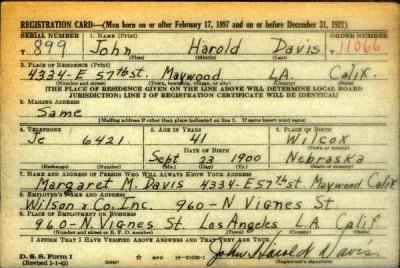 REGISTRATION CARD—(Men born on or after February 17, 1897 and on or before December 31, 1921)
SERIAL NUMBER 1. NAME (Print) ORDER NUMBER
T. 899 John Harold Davis T. 11066
(First) (Middle) (Last)
2. PLACE OF RESIDENCE (Print)
4334-E 57th st. Maywood L.A. Calif.
(Number and street) (Town, township, village, or city) (County) (State)
[THE PLACE OF RESIDENCE GIVEN ON THE LINE ABOVE WILL DETERMINE LOCAL BOARD
JURISDICTION; LINE 2 OF REGISTRATION CERTIFICATE WILL BE IDENTICAL]
3. MAILING ADDRESS
Same
[Mailing address if other than place indicated on line 2. If same insert word same]
4. TELEPHONE 5. AGE IN YEARS 6. PLACE OF BIRTH
Je 6421 41 Wilcox
DATE OF BIRTH (Town or county)
Sept 23 1900 Nebraska
(Exchange) (Number) (Mo.) (Day) (Yr.) (State or country)
7. NAME AND ADDRESS OF PERSON WHO WILL ALWAYS KNOW YOUR ADDRESS
Margaret M. Davis 4334-E 57th st. Maywood Calif
8. EMPLOYER'S NAME AND ADDRESS
Wilson & Co. Inc. 960-N Vignes St
9. PLACE OF EMPLOYMENT OR BUSINESS
960-N. Vignes St. Los Angeles L.A Calif
(Number and street or R. F. D. number) (Town) (County) (State)
I AFFIRM THAT I HAVE VERIFIED ABOVE ANSWERS AND THAT THEY ARE TRUE.
D. S. S. Form 1 John Harold Davis
(Revised 1-1-42) (over) (Registrant's signature)